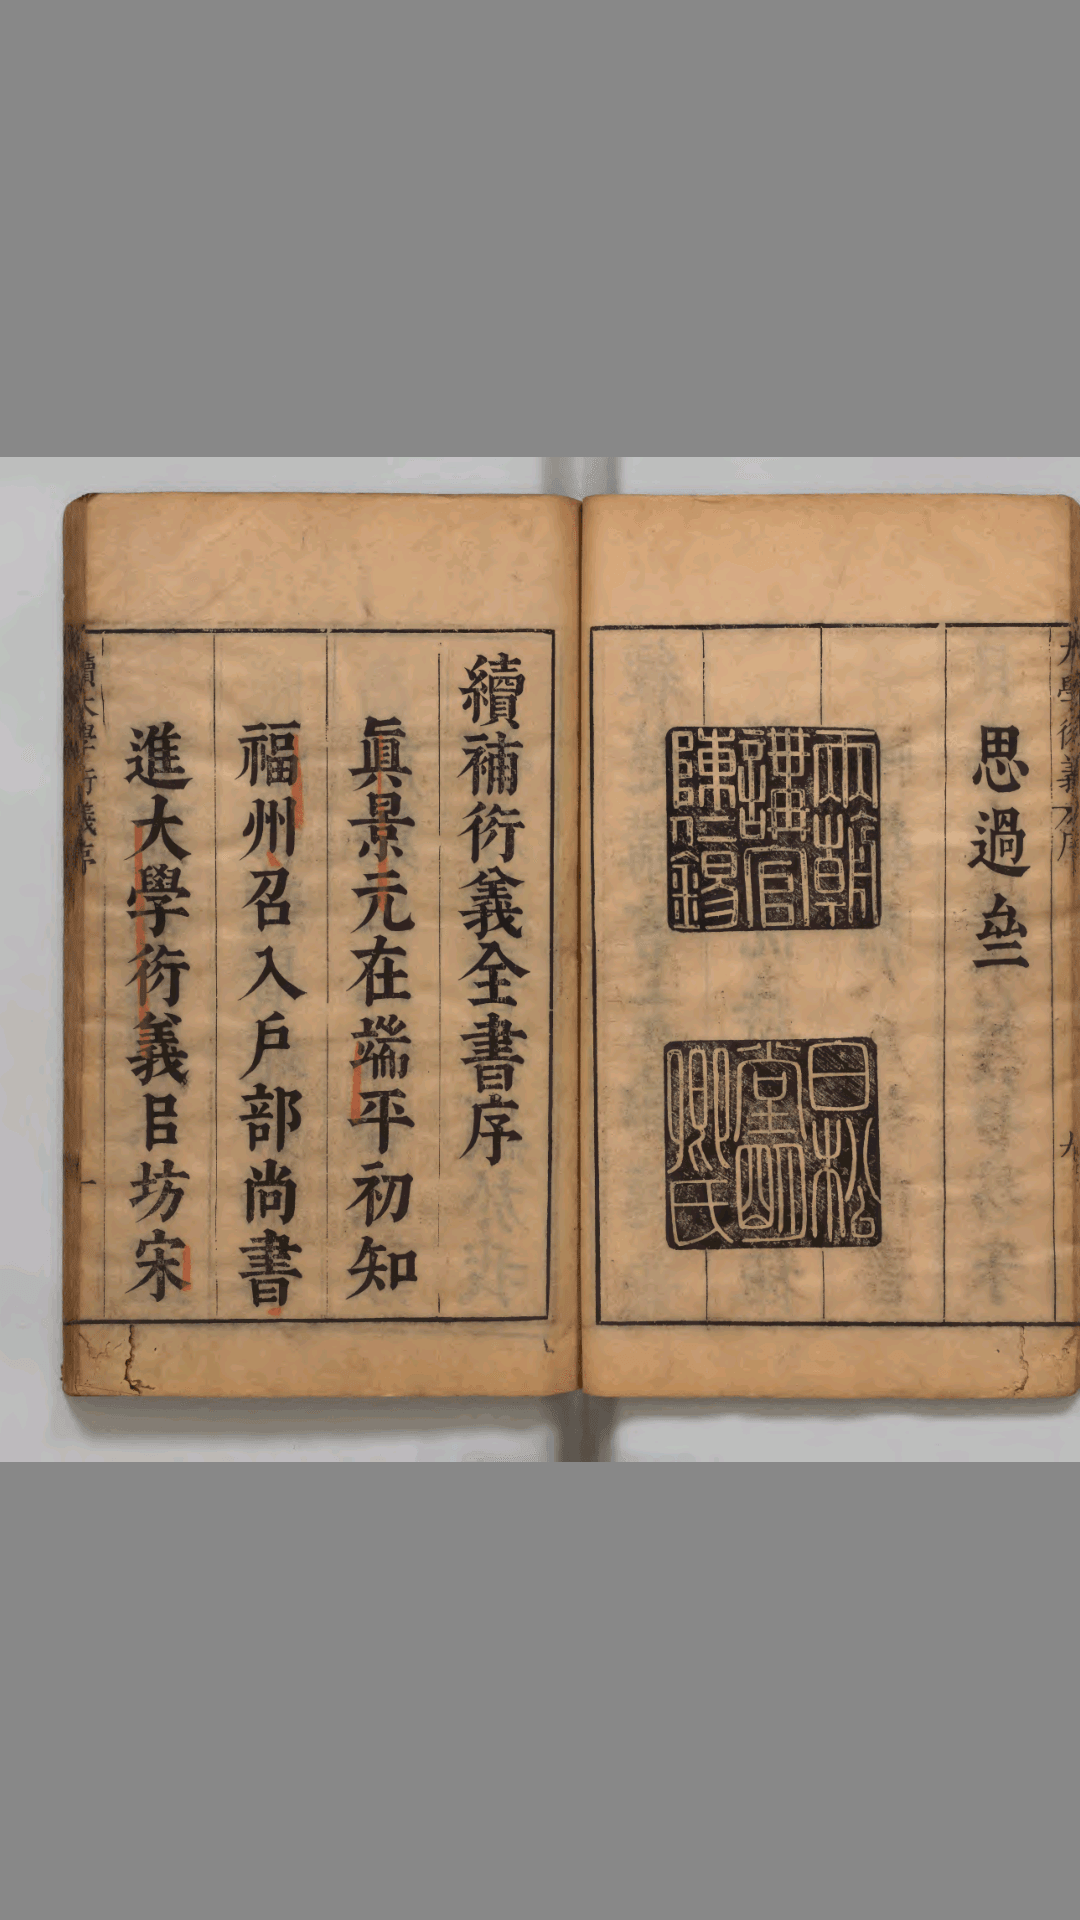 思過亝
兩朝
講官
陳仁錫
白松
堂明
卿氏
續補衍義全書序
眞景元在端平初知
福州召入戶部尚書
進大學衍義㠯坊宋
續大學衍義序
一